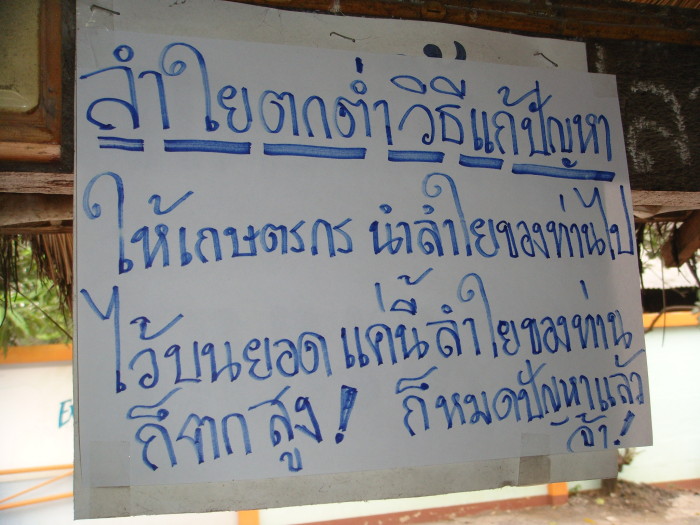 ลำใยตกต่ำวิธีแก้ปัญหา
ให้เกษตรกร นำลำใยของท่านไป
ไว้บนยอด แค่นี้ลำใยของท่าน
ก็ตกสูง! ก็หมดปัญหาแล้ว
จ้า!